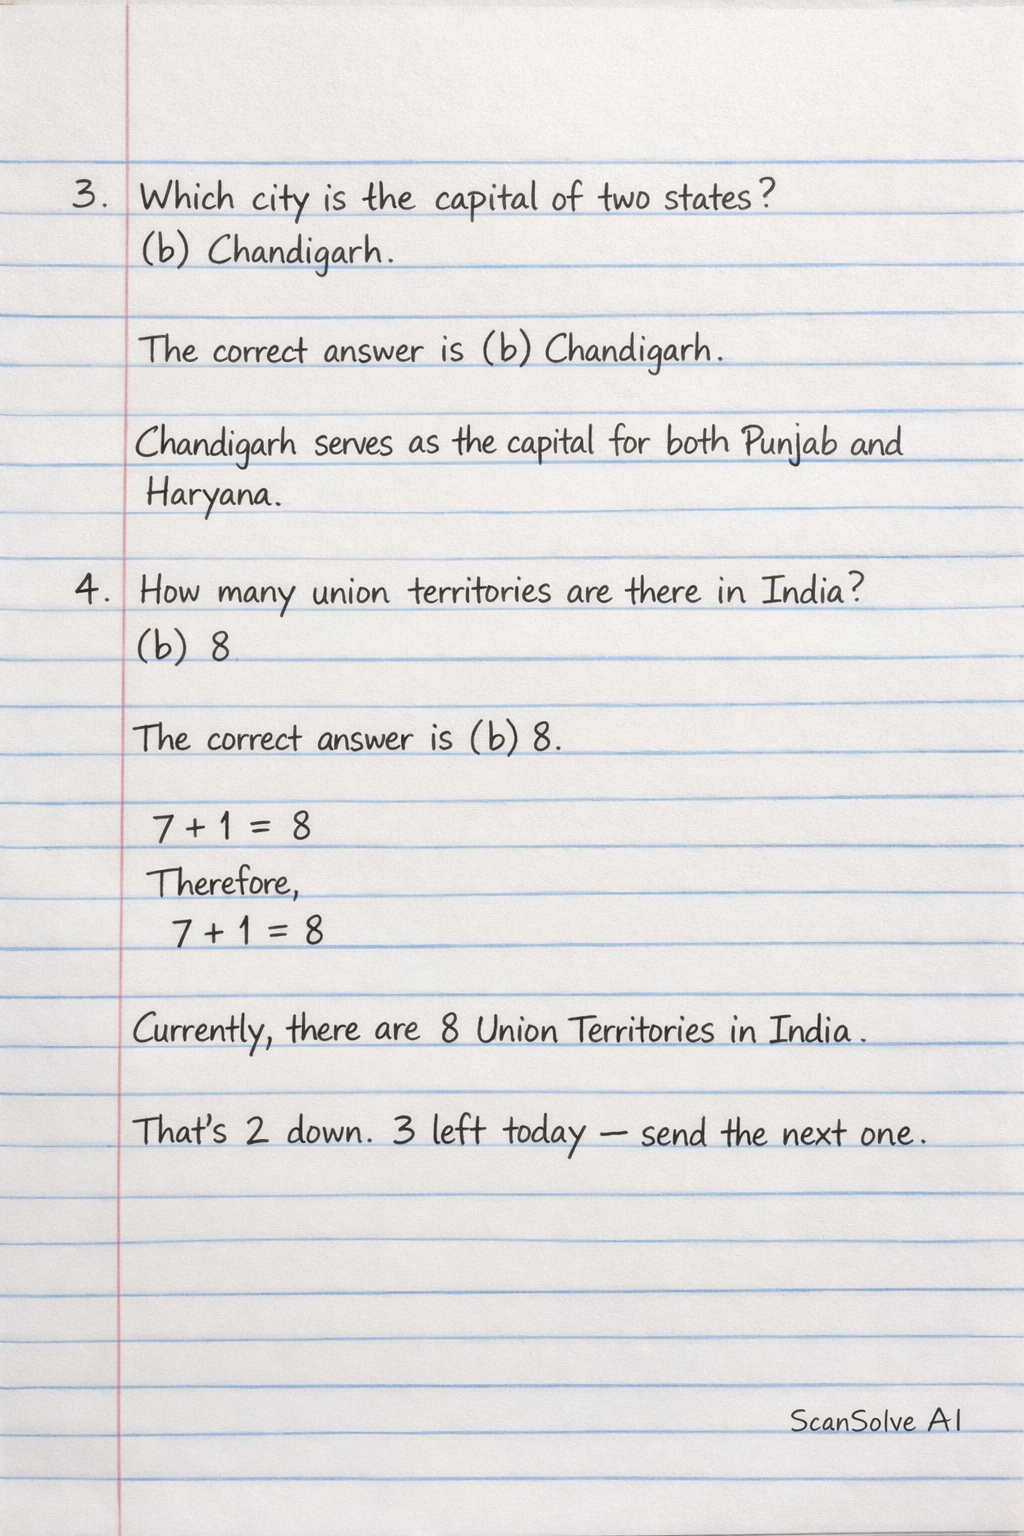 3. Which city is the capital of two states?
(b) Chandigarh.
The correct answer is (b) Chandigarh.
Chandigarh serves as the capital for both Punjab and
Haryana.
4. How many union territories are there in India?
(b) 8
The correct answer is (b) 8.
7 + 1 = 8
Therefore,
7 + 1 = 8
Currently, there are 8 Union Territories in India.
That's 2 down. 3 left today — send the next one.
ScanSolve AI